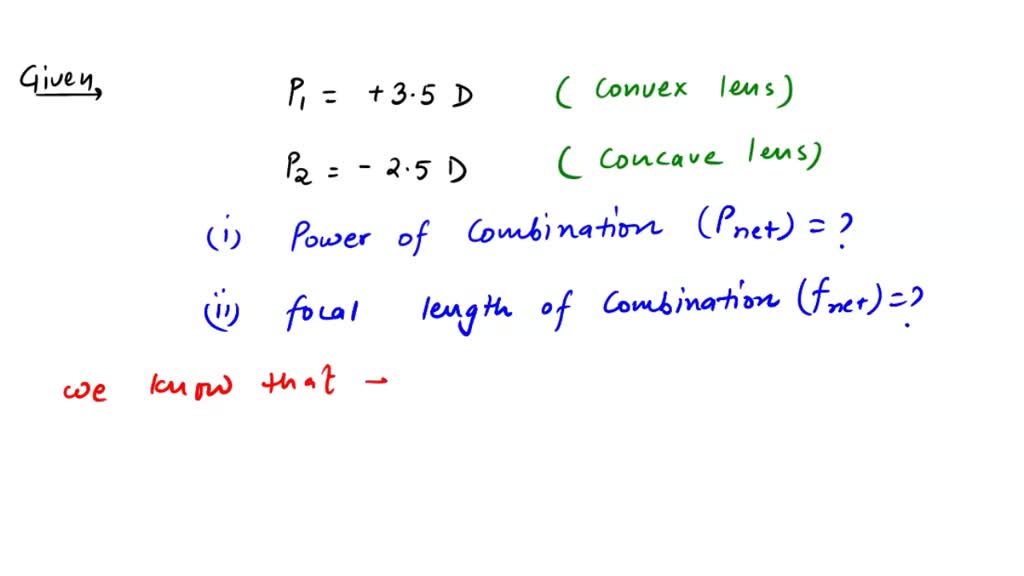 Given,
P₁ = +3.5 D (Convex lens)
P₂ = -2.5 D (Concave lens)
(i) Power of Combination (Pnet) = ?
(ii) focal length of Combination (fnet) = ?
we know that -